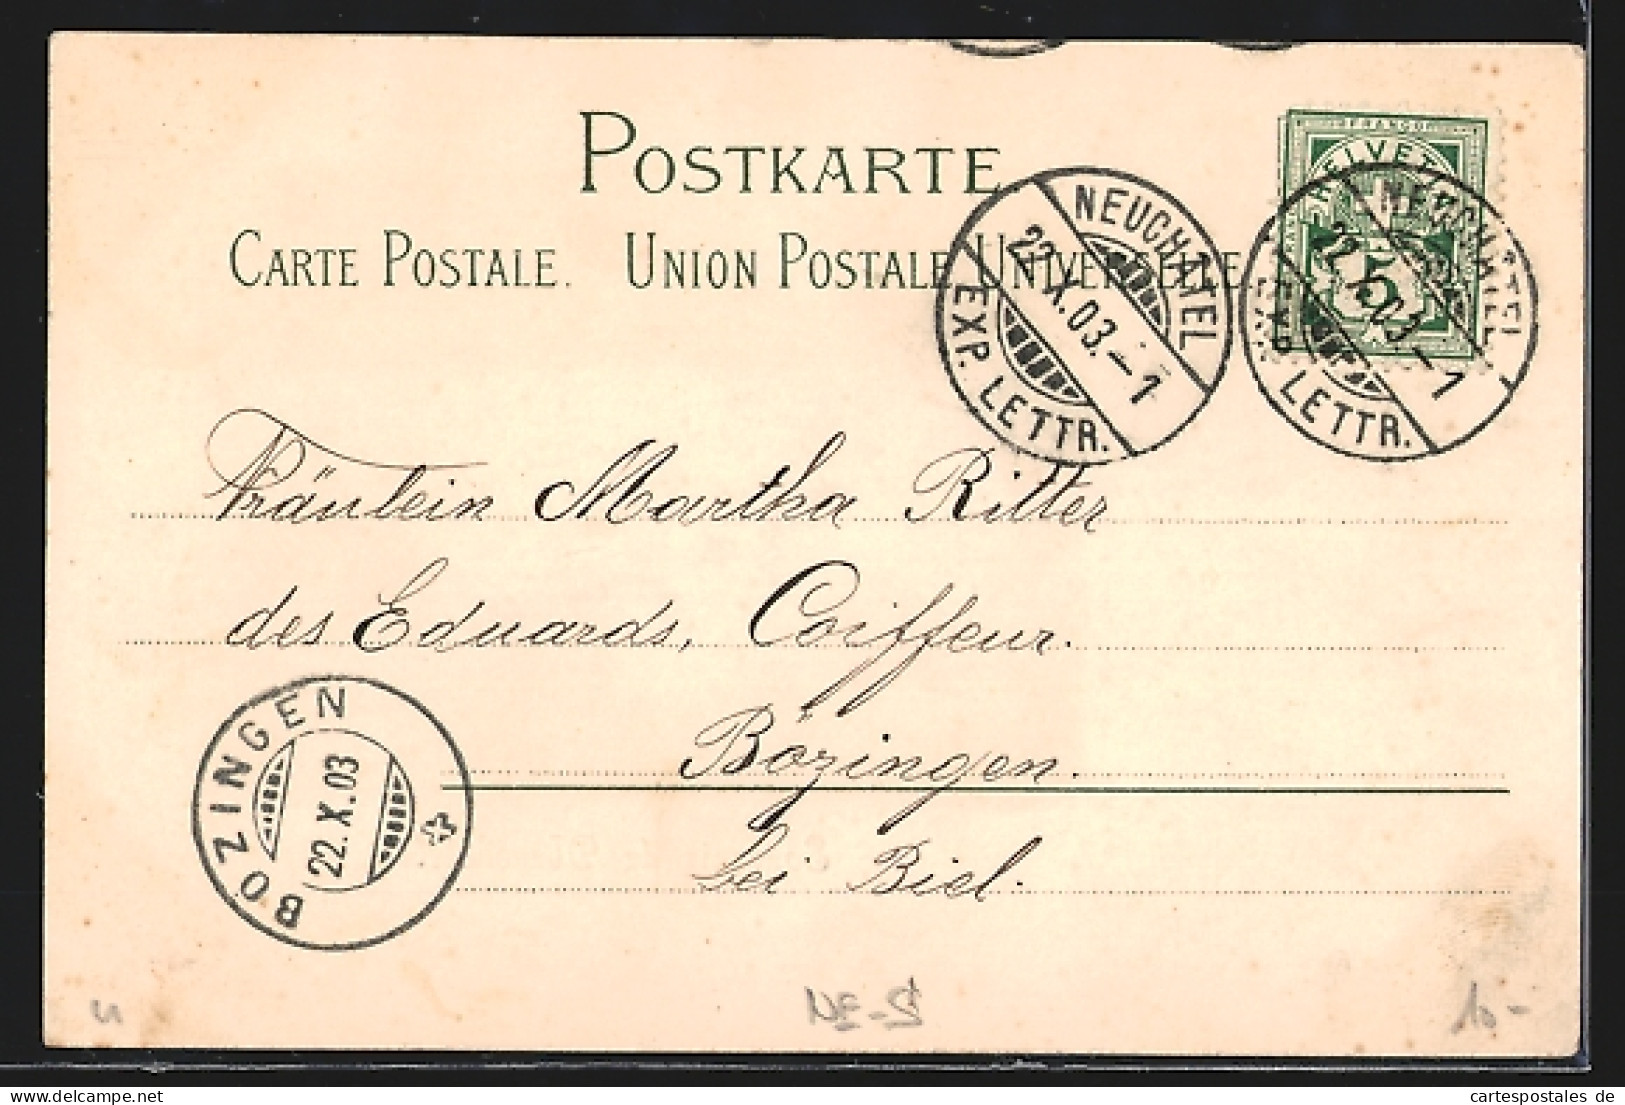 POSTKARTE
CARTE POSTALE. UNION POSTALE UNIVERSELLE.
FRANCO
HELVETIA
5
NEUCHATEL
22.X.03.–1
EXP. LETTR.
NEUCHATEL
22.X.03.–1
EXP. LETTR.
Fräulein Martha Ritter
des Eduards, Coiffeur.
Bözingen.
bei Biel.
BÖZINGEN
22.X.03
NE-S
10-
cartespostales de